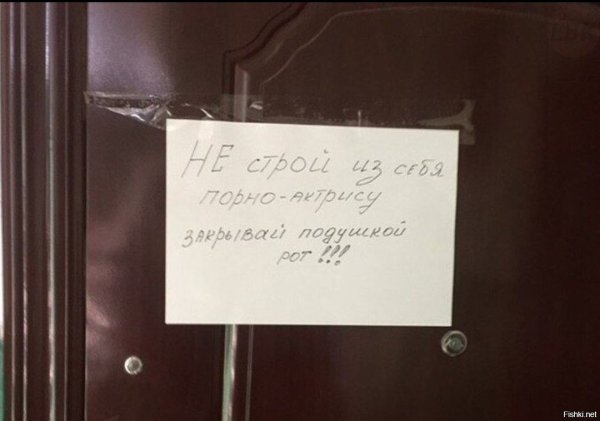 НЕ строй из себя
порно-актрису
закрывай подушкой
рот!!!
Fishki.net